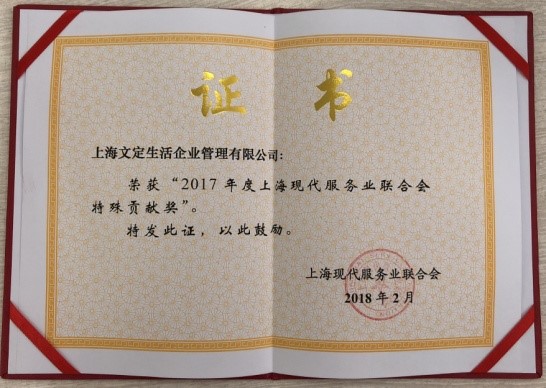 证 书
上海文定生活企业管理有限公司：
荣获“2017 年度上海现代服务业联合会
特殊贡献奖”。
特发此证，以此鼓励。
上海现代服务业联合会
2018 年 2 月